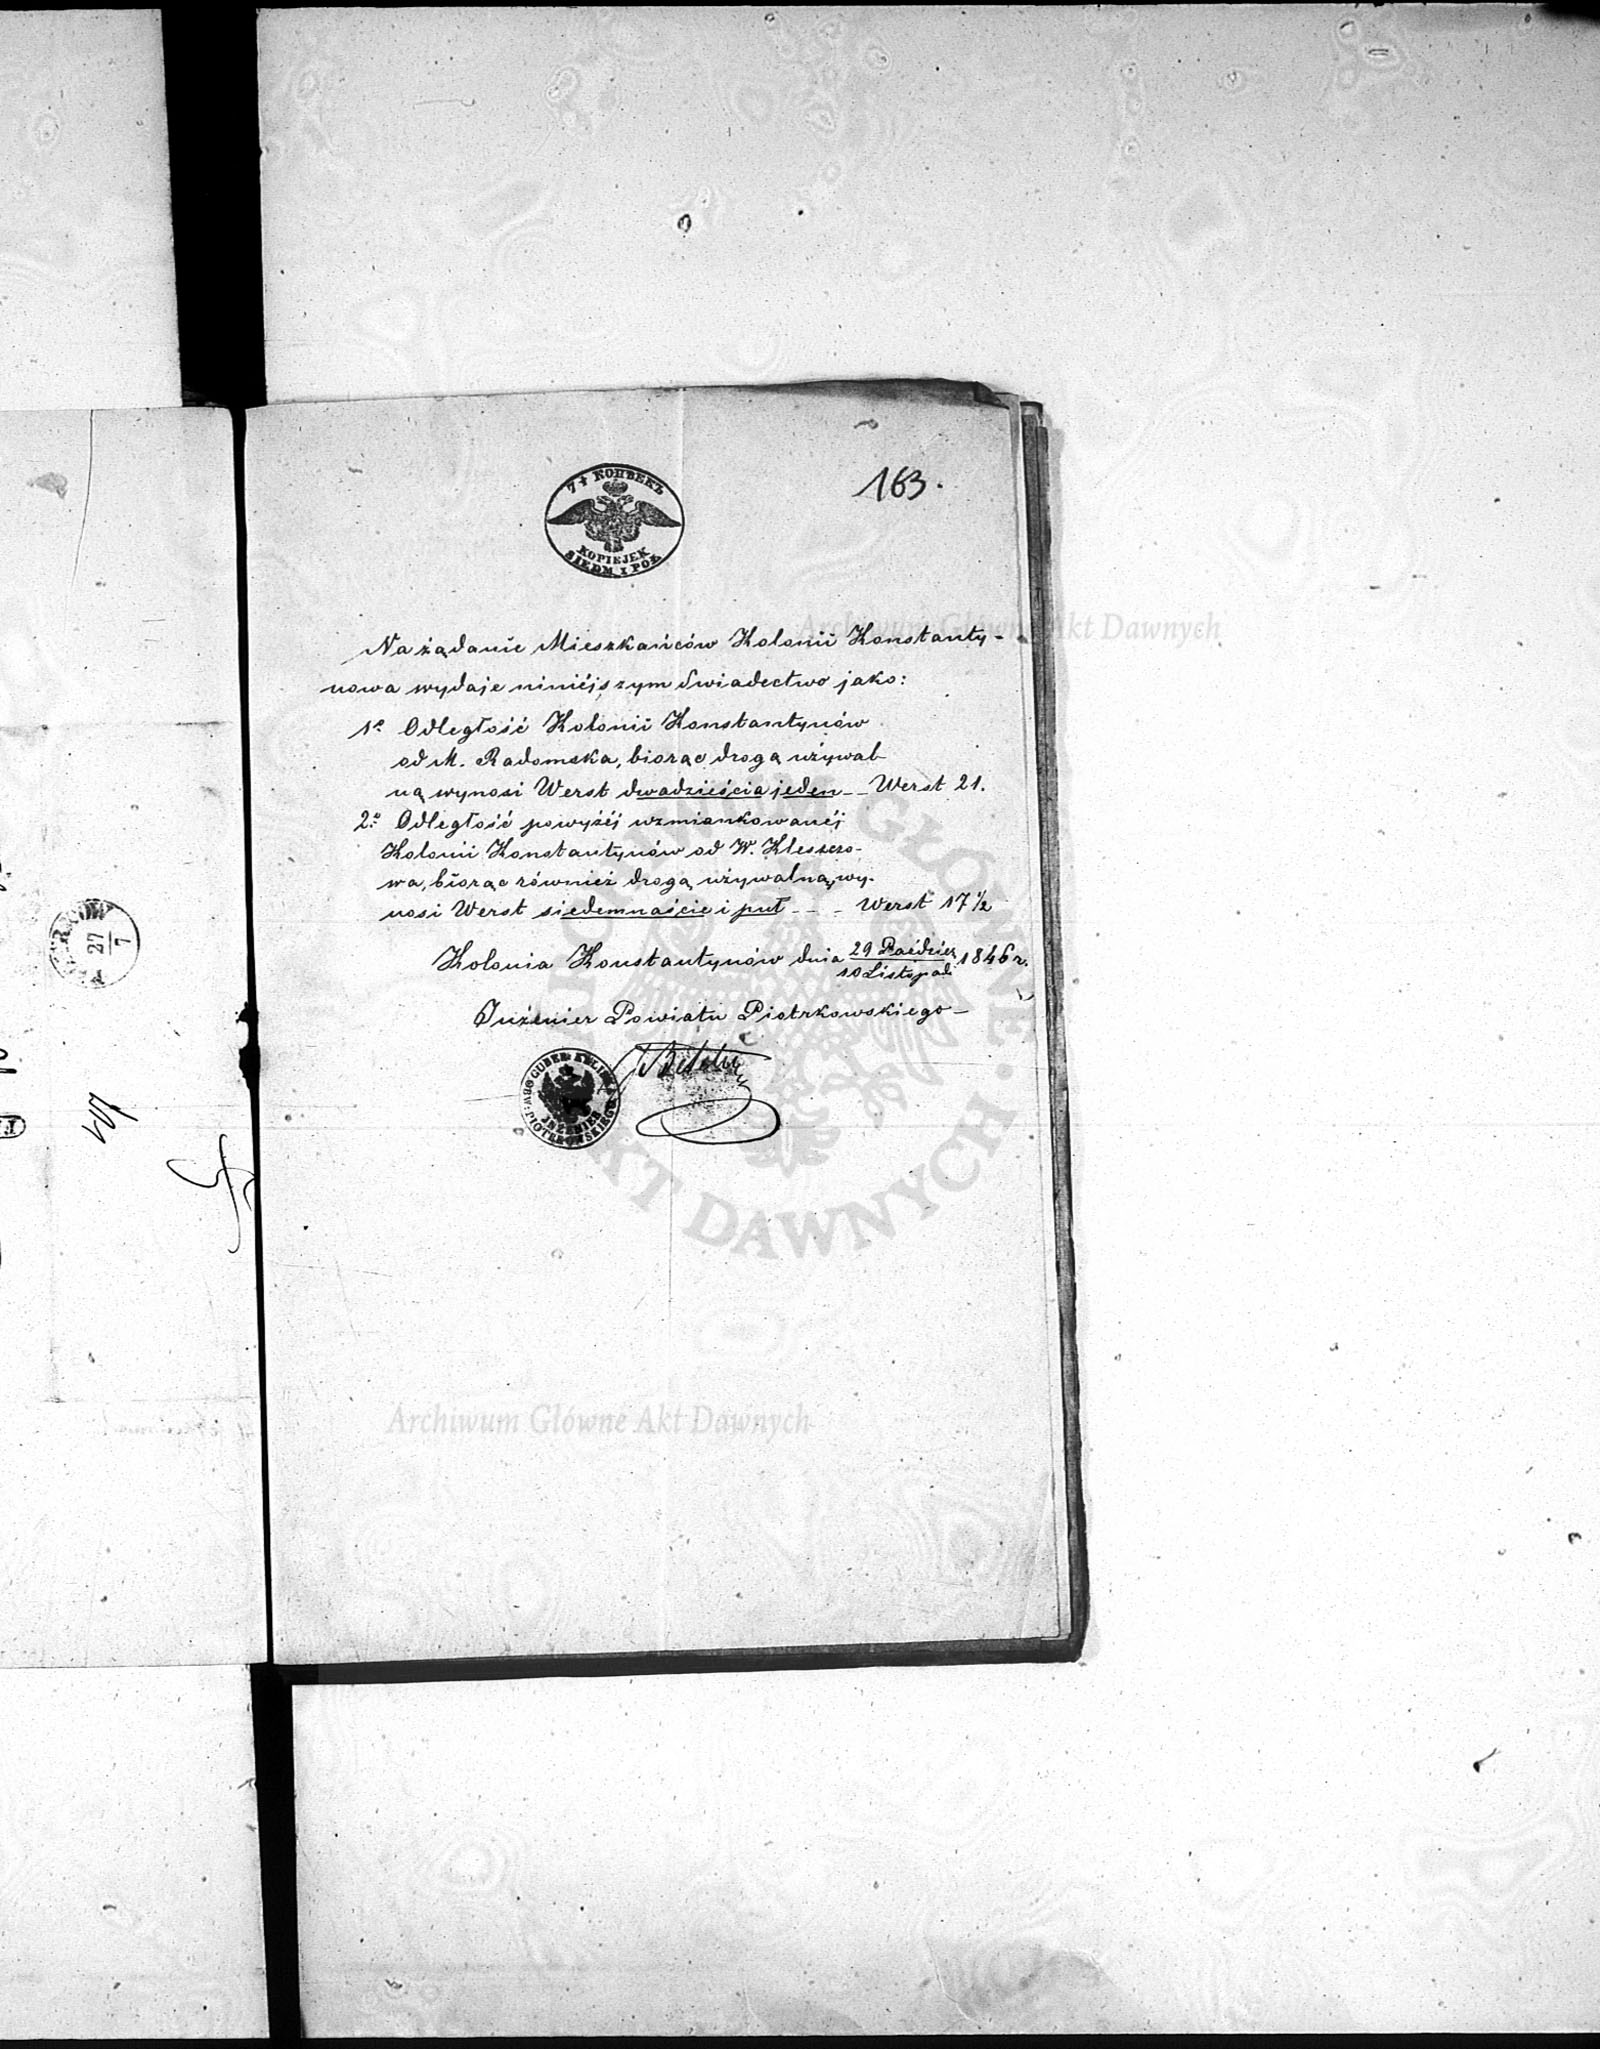 163.
7½ КОПѢЕКЪ
KOPIEJEK
SIEDM I PÓŁ
Na żądanie Mieszkańców Kolonii Konstanty-
nowa wydaje niniéjszym Swiadectwo jako:
1o Odległość Kolonii Konstantynów
od M. Radomska, biorąc drogą używal
ną wynosi Werst dwadzieścia jeden -- Werst 21.
2o Odległość powyżéj wzmiankowanéj
Kolonii Konstantynów od W. Kleszczo-
wa, biorąc również drogą używalną, wy-
nosi Werst siedemnaście i puł -- - Werst 17 1/2
Kolonia Konstantynów dnia 29 Paździer 1846 r.
10 Listopad
Inżenier Powiatu Piotrkowskiego -
INŻENIER
27
7
Archiwum Główne Akt Dawnych
GŁÓWNE
AKT DAWNYCH
Archiwum Główne Akt Dawnych